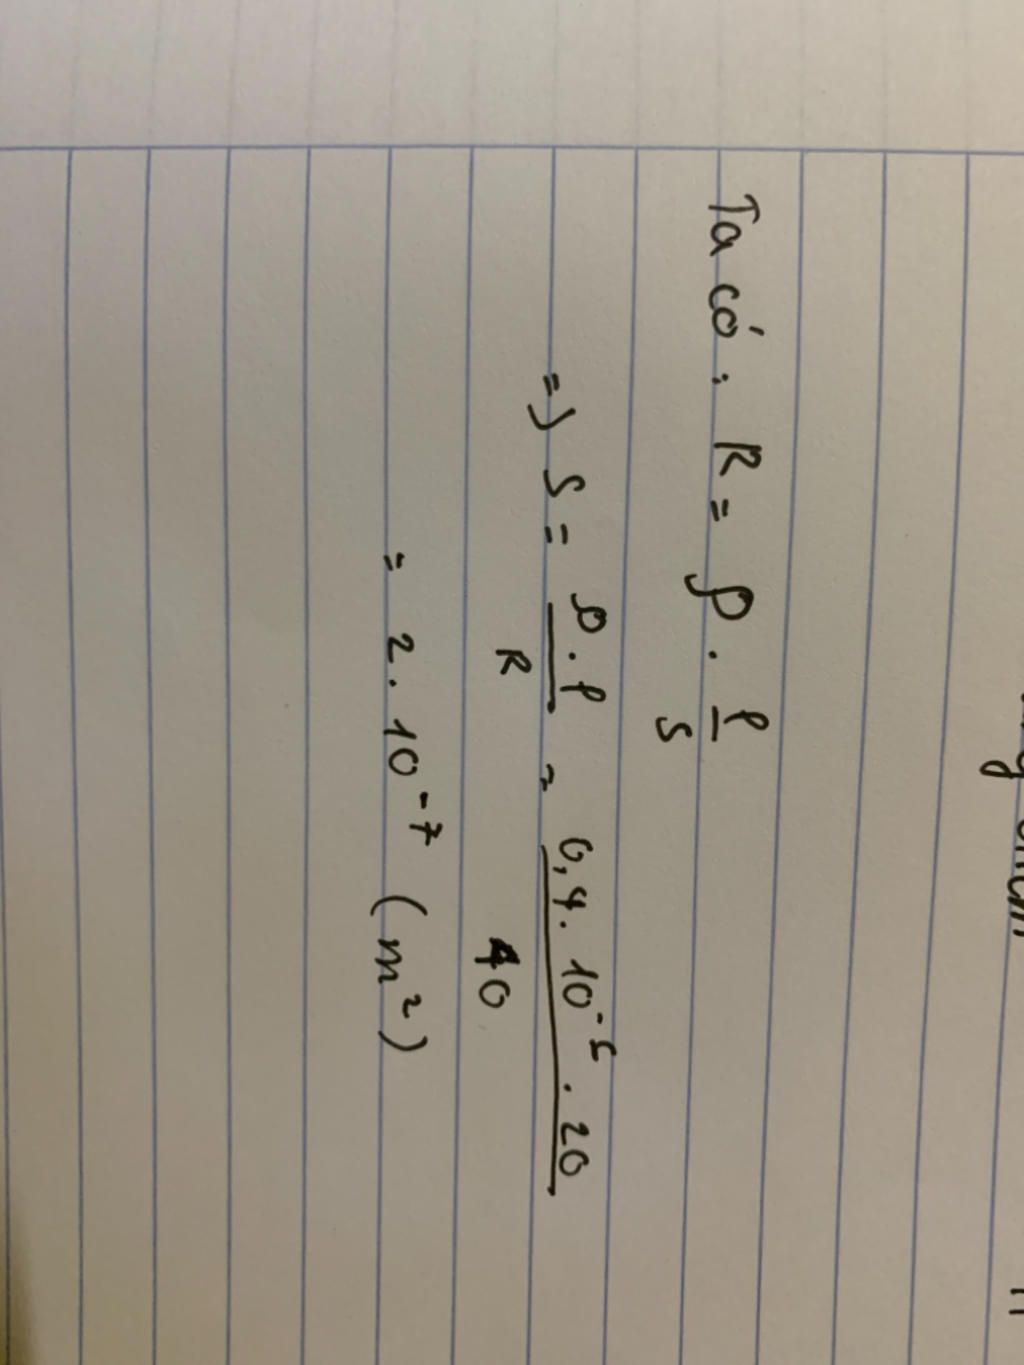 Ta có: R = ρ . l/S
=> S = ρ.l/R = 0,4. 10⁻⁵ . 20/40
= 2. 10⁻⁷ (m²)